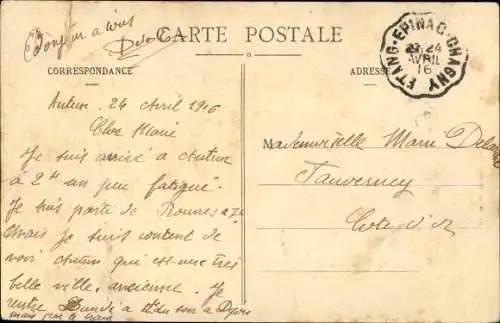 Bonjour à tous
CARTE POSTALE
CORRESPONDANCE
ADRESSE
ETANG-EPINAC-CHAGNY
24
AVRIL
16
Autun. 24 Avril 1916
Cher Marie
Je suis arrivé a Autun
à 2h un peu fatigué.
Je suis parti de a 7h
Mais je suis content de
voir Autun qui est une très
belle ville, ancienne. Je
rentre Lundi a du soir a Dijon
Mademoiselle Marie
Tauverney
Cote d'or